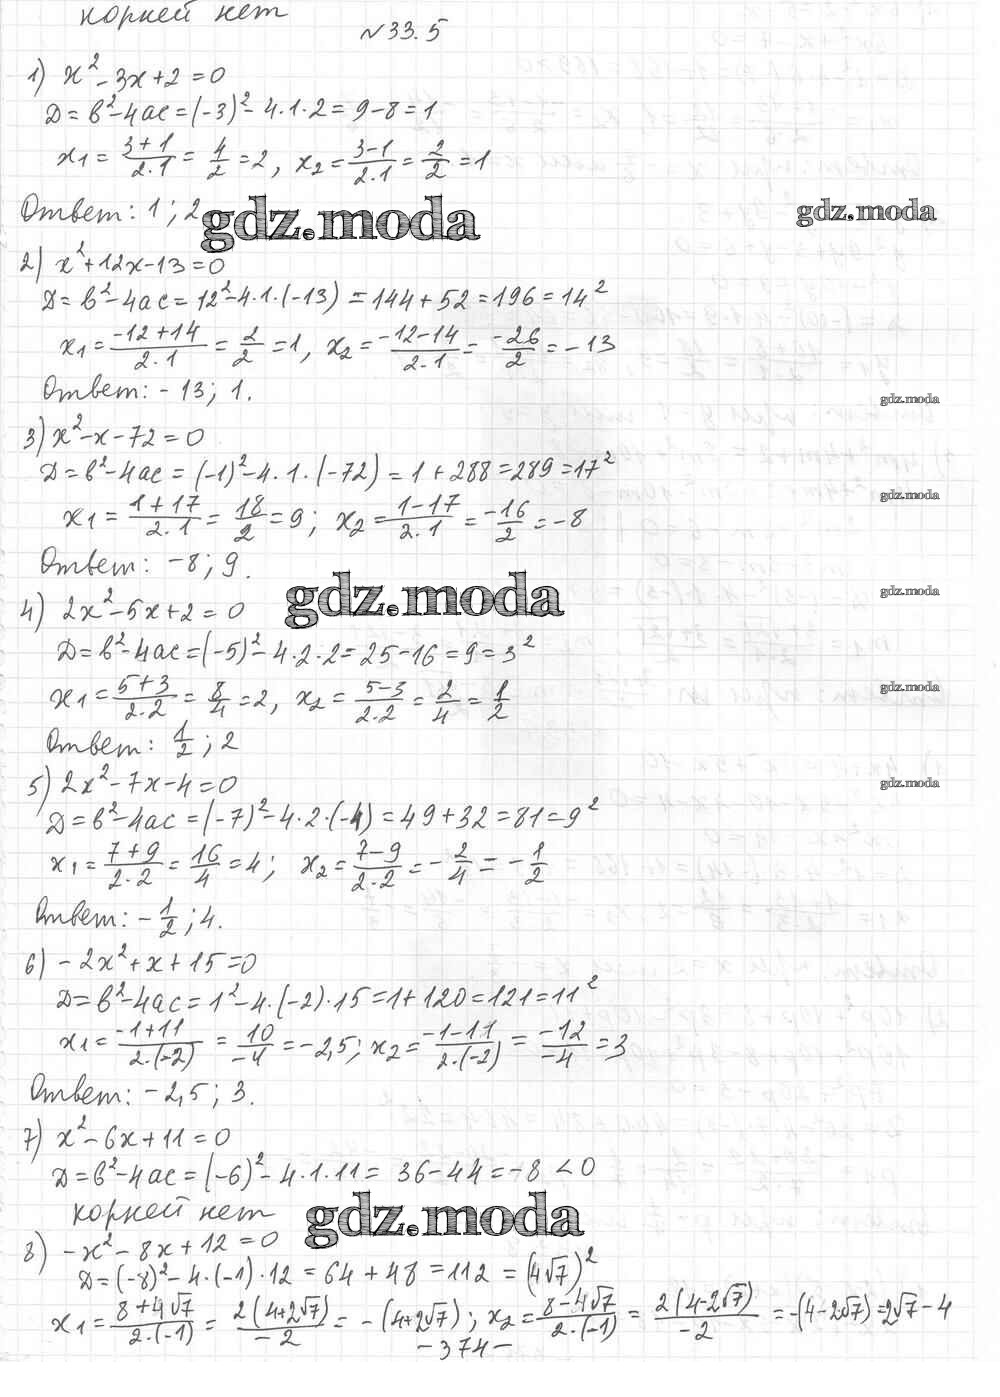 корней нет
№33.5
1) x² - 3x + 2 = 0
D = b² - 4ac = (-3)² - 4·1·2 = 9 - 8 = 1
x1 = (3+1)/(2·1) = 4/2 = 2, x2 = (3-1)/(2·1) = 2/2 = 1
Ответ: 1; 2
gdz.moda
gdz.moda
2) x² + 12x - 13 = 0
D = b² - 4ac = 12² - 4·1·(-13) = 144 + 52 = 196 = 14²
x1 = (-12+14)/(2·1) = 2/2 = 1, x2 = (-12-14)/(2·1) = -26/2 = -13
Ответ: -13; 1.
gdz.moda
3) x² - x - 72 = 0
D = b² - 4ac = (-1)² - 4·1·(-72) = 1 + 288 = 289 = 17²
gdz.moda
x1 = (1+17)/(2·1) = 18/2 = 9; x2 = (1-17)/(2·1) = -16/2 = -8
Ответ: -8; 9.
gdz.moda
gdz.moda
4) 2x² - 5x + 2 = 0
D = b² - 4ac = (-5)² - 4·2·2 = 25 - 16 = 9 = 3²
x1 = (5+3)/(2·2) = 8/4 = 2, x2 = (5-3)/(2·2) = 2/4 = 1/2
gdz.moda
Ответ: 1/2; 2
5) 2x² - 7x - 4 = 0
gdz.moda
D = b² - 4ac = (-7)² - 4·2·(-4) = 49 + 32 = 81 = 9²
x1 = (7+9)/(2·2) = 16/4 = 4; x2 = (7-9)/(2·2) = -2/4 = -1/2
Ответ: -1/2; 4.
6) -2x² + x + 15 = 0
D = b² - 4ac = 1² - 4·(-2)·15 = 1 + 120 = 121 = 11²
x1 = (-1+11)/(2·(-2)) = 10/-4 = -2,5; x2 = (-1-11)/(2·(-2)) = -12/-4 = 3
Ответ: -2,5; 3.
7) x² - 6x + 11 = 0
D = b² - 4ac = (-6)² - 4·1·11 = 36 - 44 = -8 < 0
корней нет
gdz.moda
8) -x² - 8x + 12 = 0
D = (-8)² - 4·(-1)·12 = 64 + 48 = 112 = (4√7)²
x1 = (8+4√7)/(2·(-1)) = 2(4+2√7)/-2 = -(4+2√7); x2 = (8-4√7)/(2·(-1)) = 2(4-2√7)/-2 = -(4-2√7) = 2√7 - 4
-374-